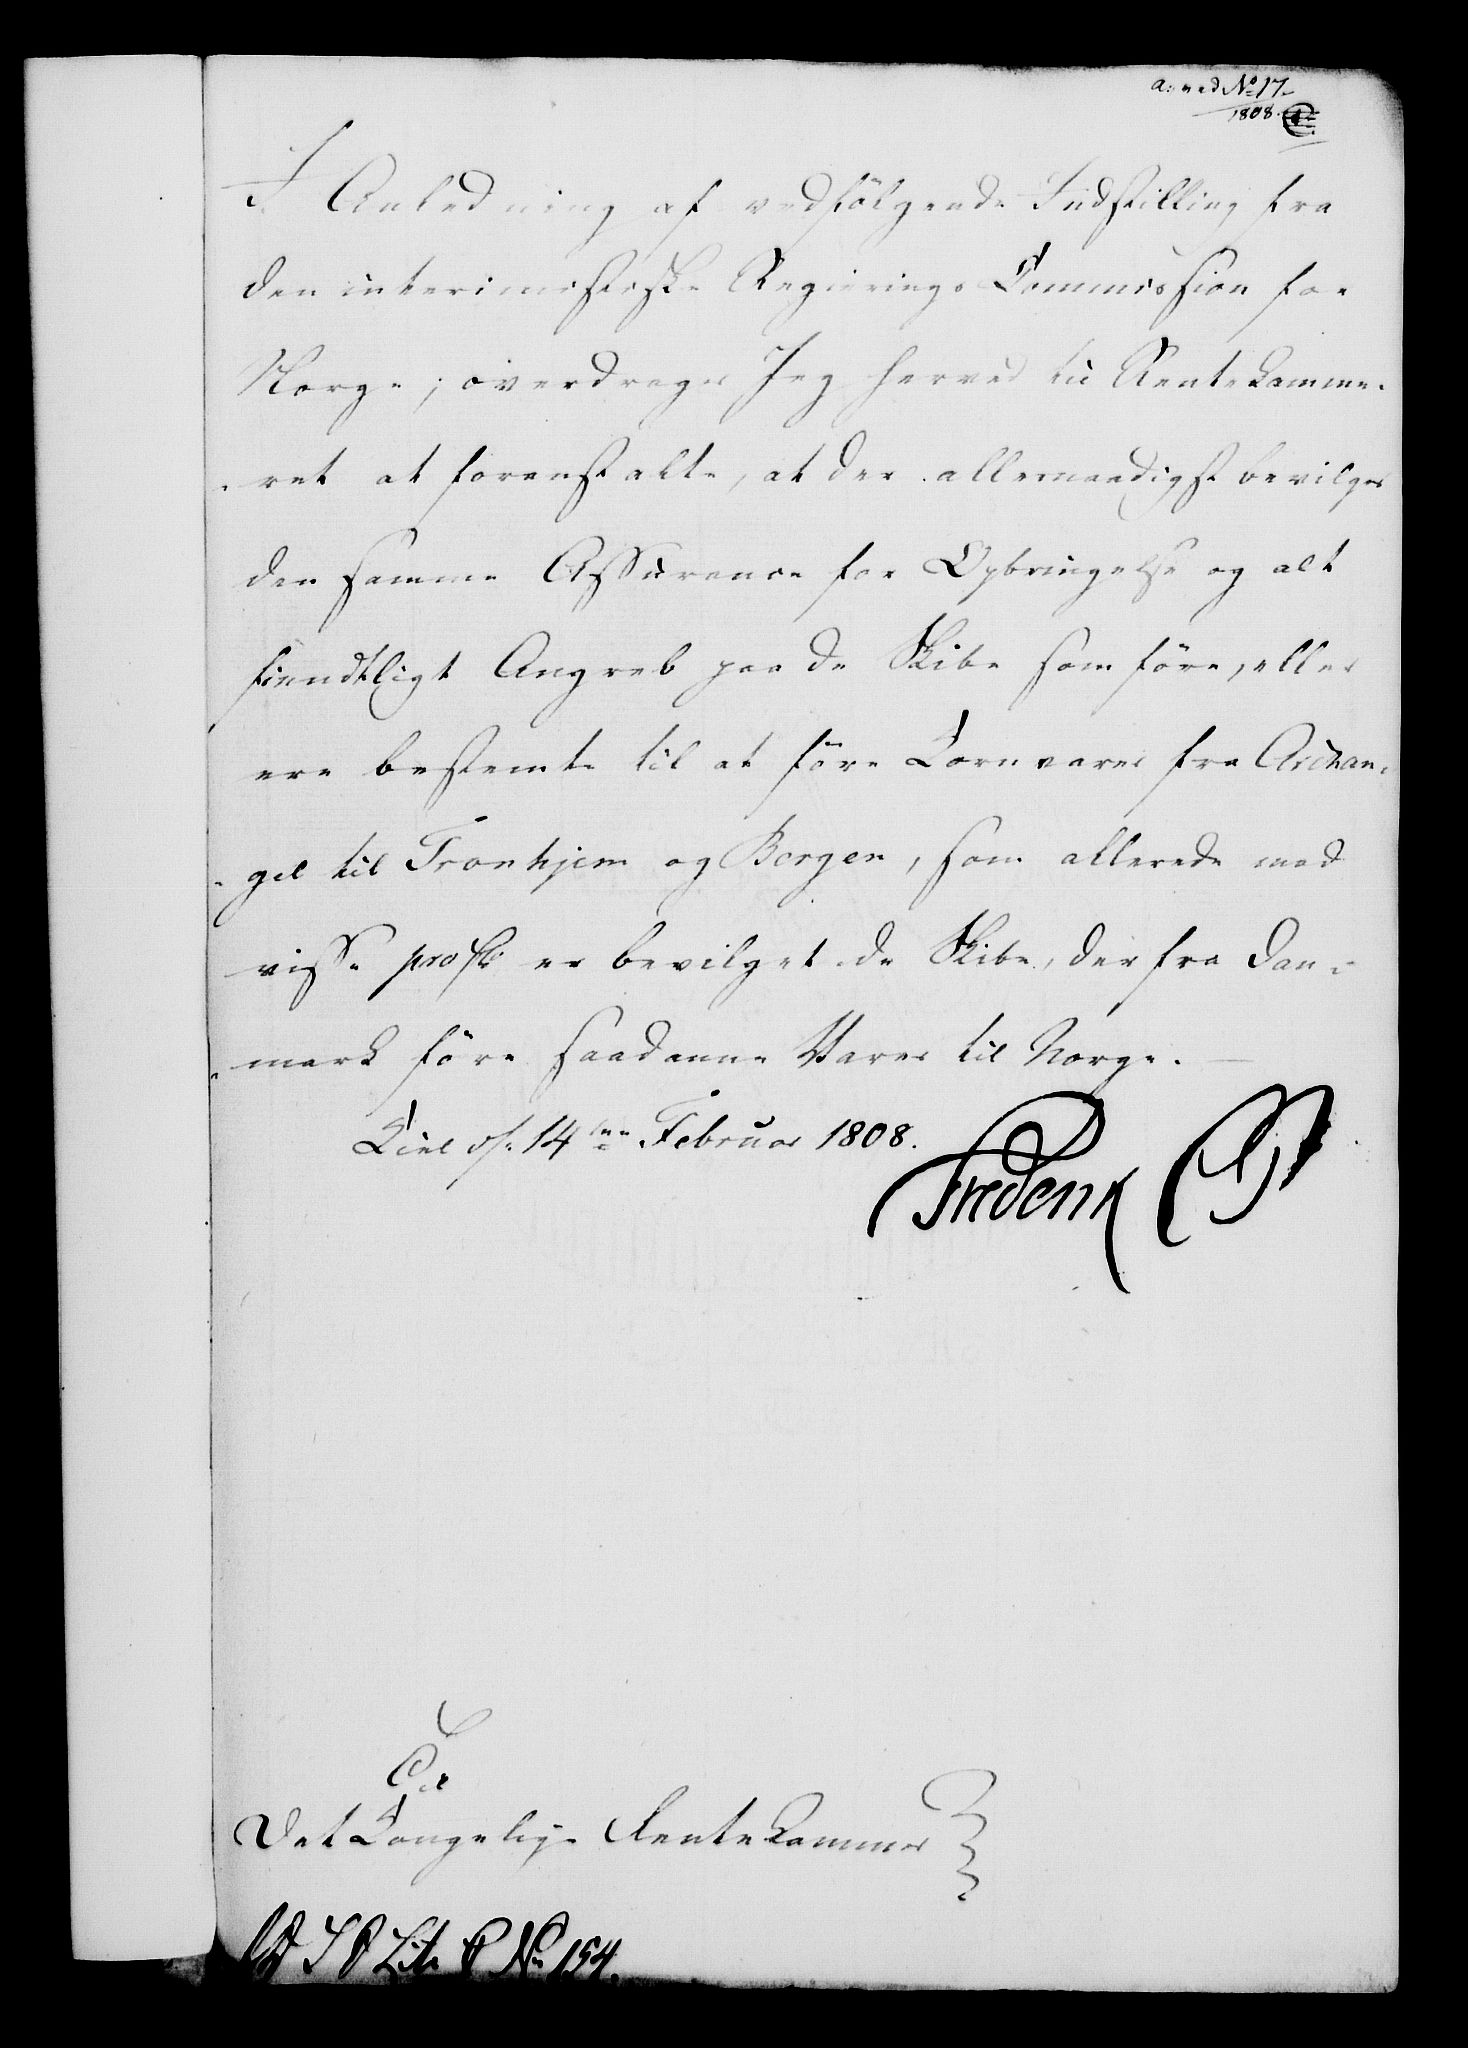 a: ved No 17
1808.
I Anledning af vedfølgende Indstilling fra
den interimistiske Regierings Commission for
Norge; overdrager Jeg herved til Rentekamme-
ret at foranstalte, at der allernaadigst bevilges
den samme Assurance for Opbringelse og alt
fiendtligt Angreb paa de Skibe som före, eller
ere bestemte til at före Kornvarer fra Archan-
gel til Tronhjem og Bergen, som allerede mod
visse pro Cto er bevilget de Skibe, der fra Dan-
mark före saadanne Varer til Norge.
Kiel d: 14ten Februar 1808.
Frederik CP
Til
Det Kongelige Rentekammer
Lit No 154.